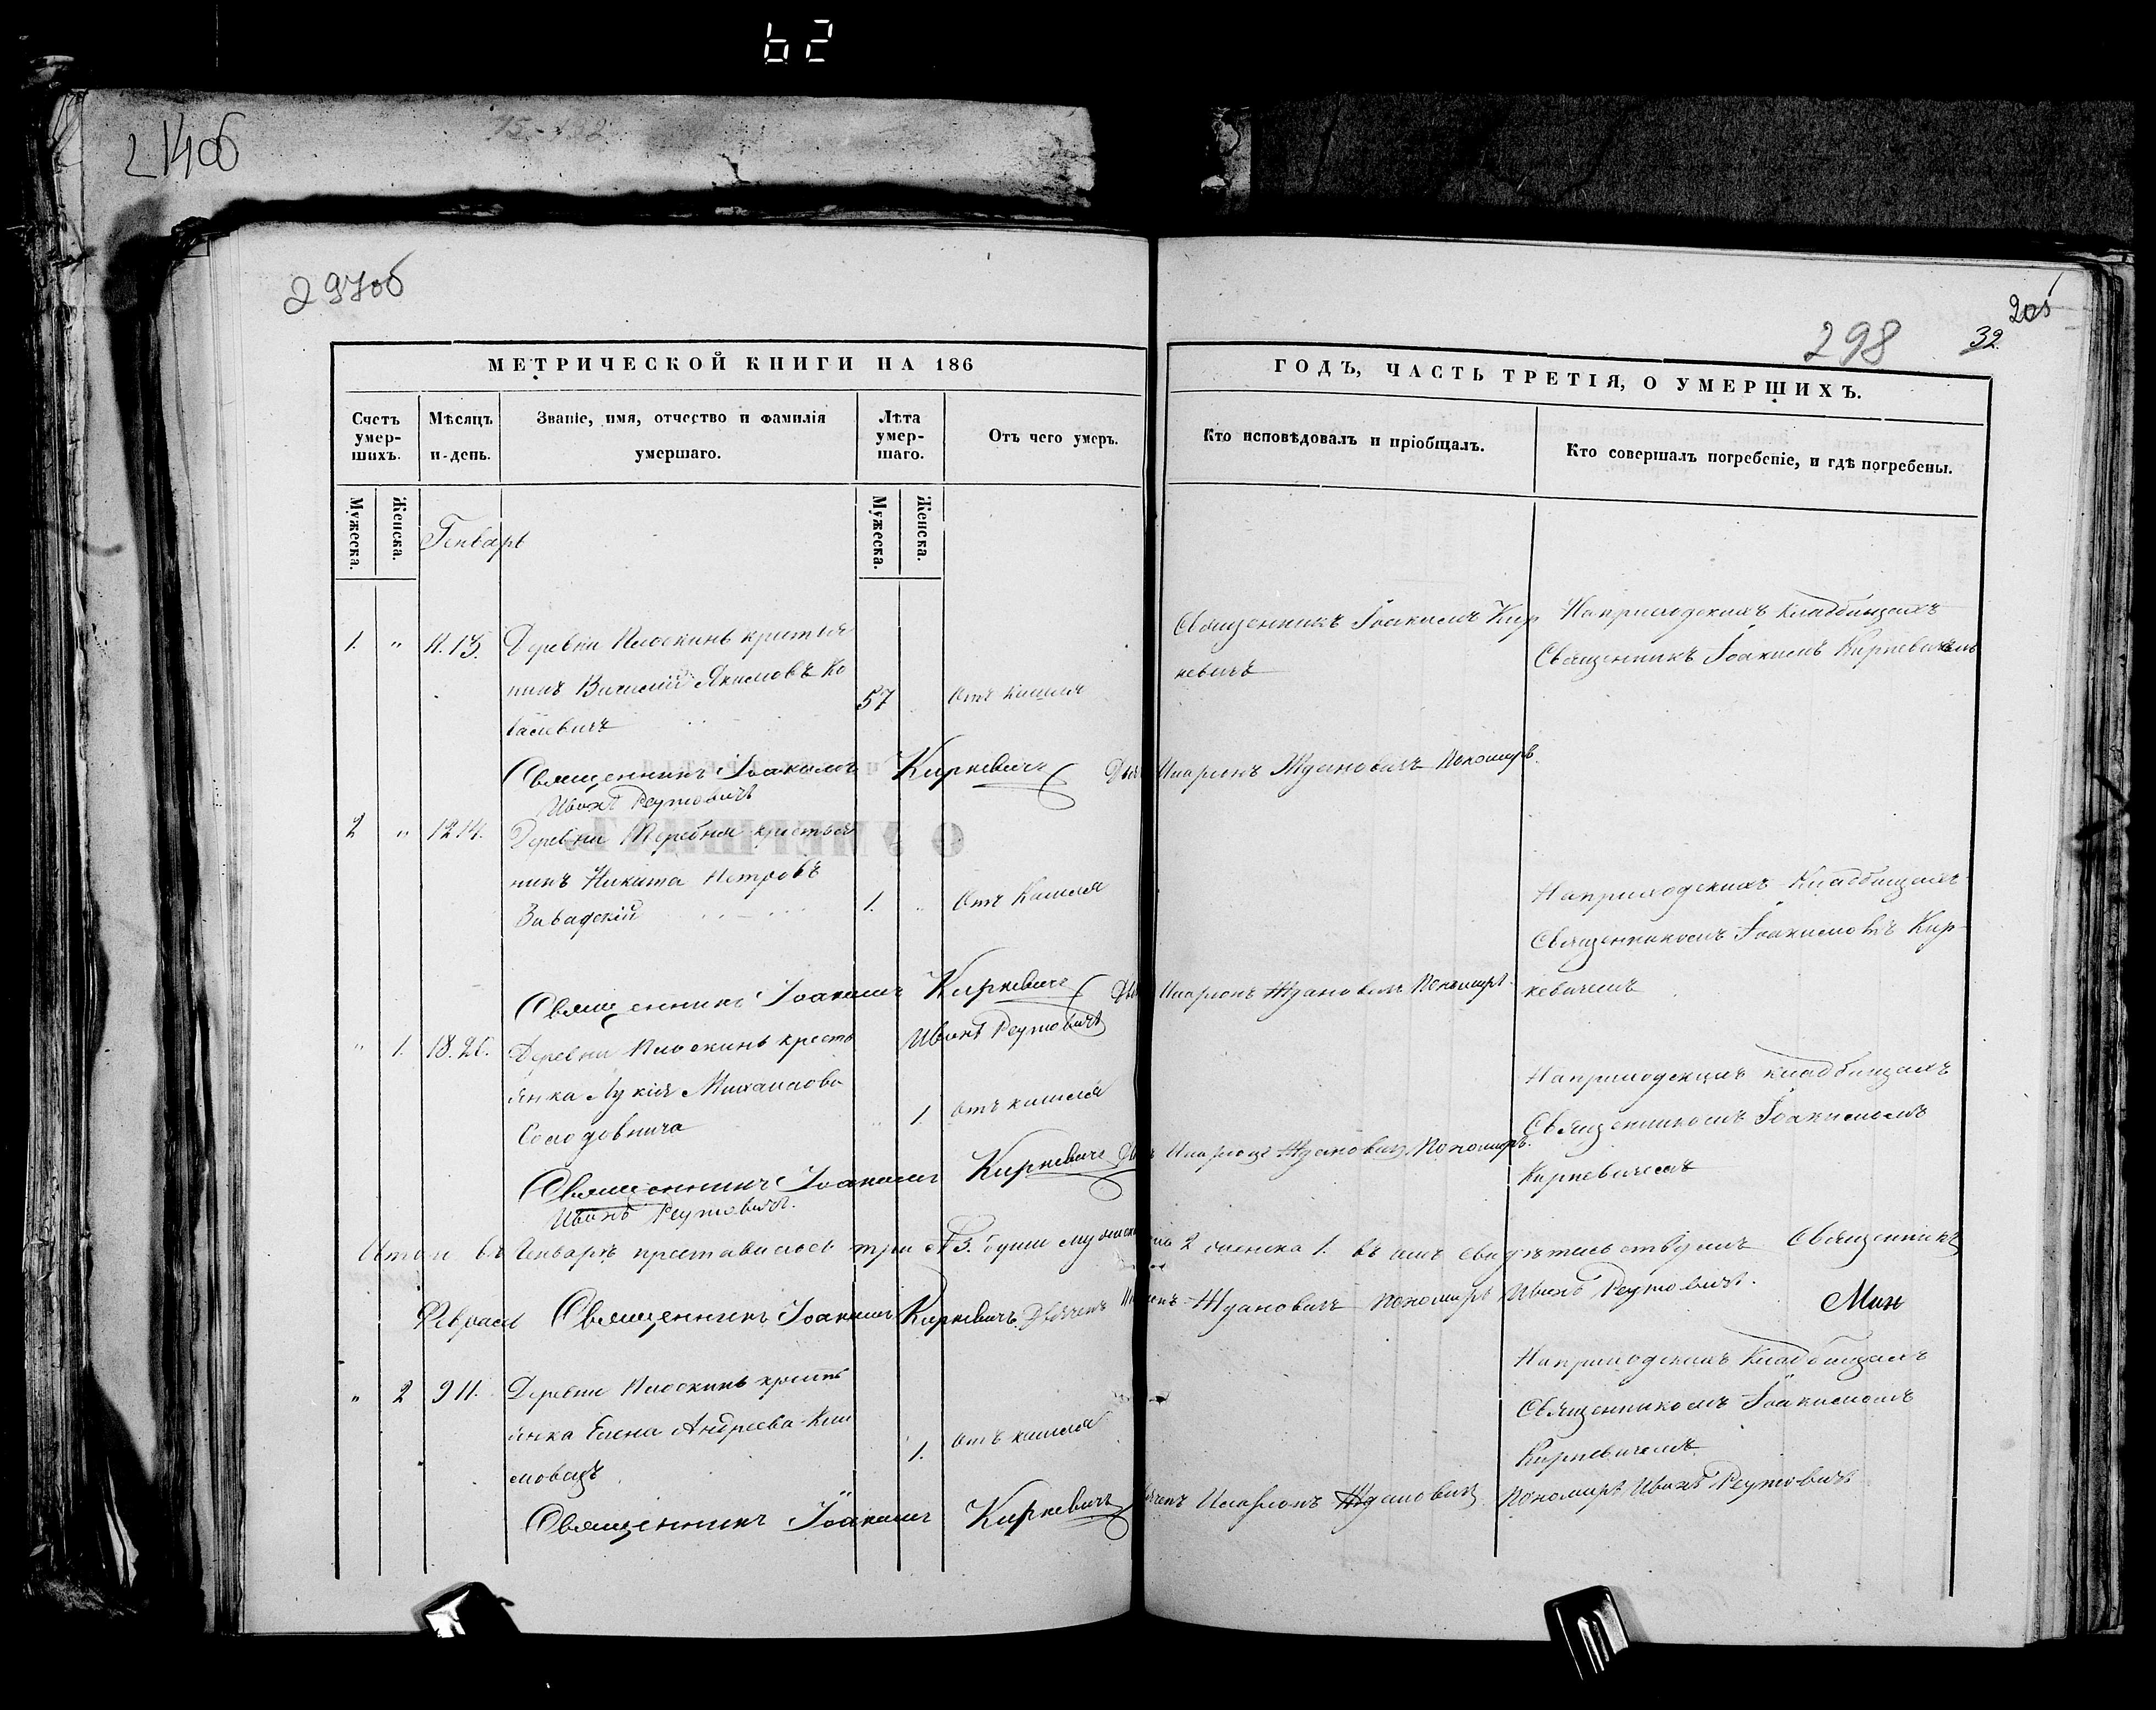 62
214об
297об
205
298
32.
МЕТРИЧЕСКОЙ КНИГИ НА 186
ГОДЪ, ЧАСТЬ ТРЕТІЯ, О УМЕРШИХЪ.
Счетъ умер-шихъ.
Мѣсяцъ и день.
Званіе, имя, отчество и фамилія умершаго.
Лѣта умер-шаго.
Отъ чего умеръ.
Кто исповѣдовалъ и пріобщалъ.
Кто совершалъ погребеніе, и гдѣ погребены.
Мужеска.
Женска.
Мужеска.
Женска.
Генварь
1. " 11. 13. Деревни Плоскинь крестья
нинъ Василій Якимовъ Ко
валевичъ
57
отъ кашля
Священникъ Іоакимъ Кир
кевичъ
На приходскихъ кладбищахъ
Священникъ Іоакимъ Киркевичемъ
Священникъ Іоакимъ Киркевичъ Дьяч Иларіонъ Ждановичъ Пономарь
Иванъ Реутовичъ
2 " 12 14. Деревни Теребня крестья
нинъ Никита Петровъ
Завадскій
1.
отъ кашля
На приходскихъ кладбищахъ
Священникомъ Іоакимовъ Кир-
кевичемъ
Священникъ Іоакимъ Киркевичъ Дьяч Иларіонъ Ждановичъ Пономарь
Иванъ Реутовичъ
" 1. 18. 20. Деревни Плоскинь кресть
янка Лукія Михаилова
Солодовнича
1
отъ кашля
На приходскихъ кладбищахъ
Священникомъ Іоакимомъ
Киркевичемъ
Священникъ Іоакимъ Киркевичъ Дьяч Иларіонъ Ждановичъ Пономарь.
Иванъ Реутовичъ.
Итого въ Генварѣ преставилось три 3. души мужеска пола 2 женска 1. въ чемъ свидѣтельствуемъ Священникъ
Февраль Священникъ Іоакимъ Киркевичъ. Дьячекъ Ждановичъ Пономарь Иванъ Реутовичъ.
" 2 9 11. Деревни Плоскинь кресть
янка Елена Андреева Кли
мовецъ
1.
отъ кашля
На приходскихъ кладбищахъ
Священникомъ Іоакимомъ
Киркевичемъ
Священникъ Іоакимъ Киркевичъ Дьячекъ Иларіонъ Ждановичъ Пономарь Иванъ Реутовичъ